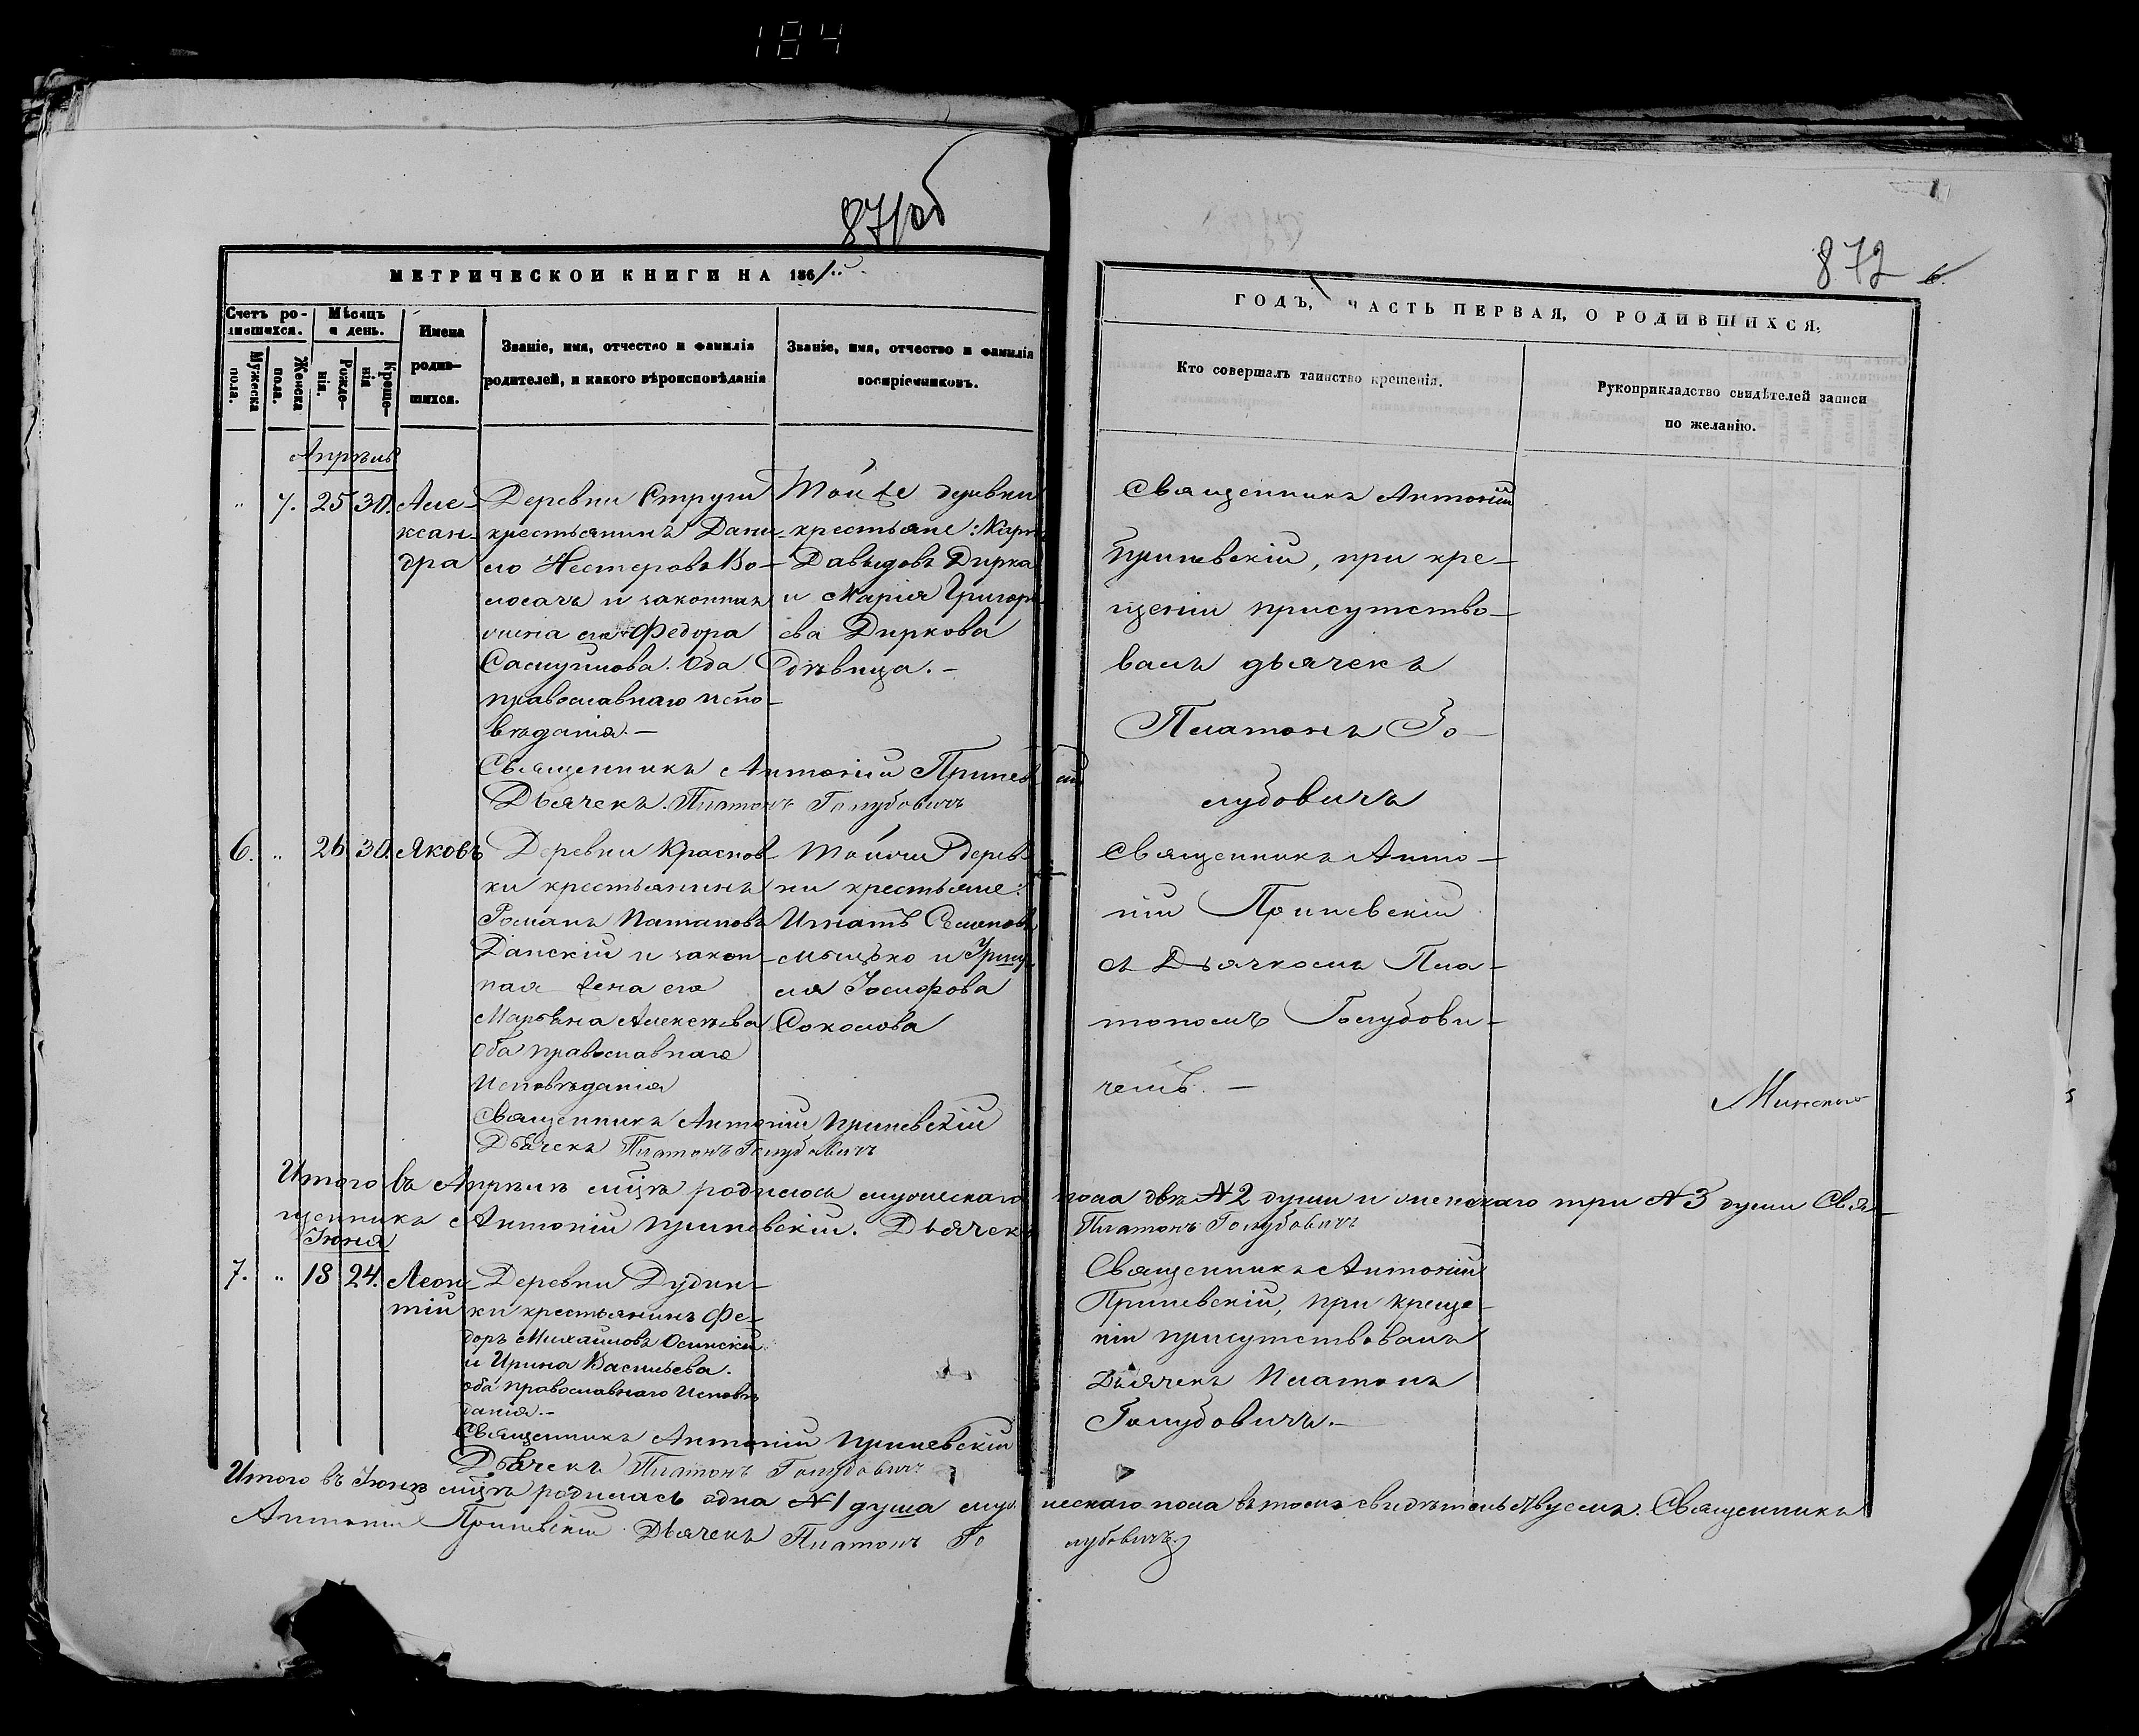 184
871об
872
МЕТРИЧЕСКОЙ КНИГИ НА 1861
ГОДЪ, ЧАСТЬ ПЕРВАЯ, О РОДИВШИХСЯ.
Счетъ ро-
дившихся.
Мужеска
пола.
Женска
пола.
Мѣсяцъ
и день.
Рожде-
нія.
Креще-
нія
Имена
родив-
шихся.
Званіе, имя, отчество и фамилія
родителей, и какого вѣроисповѣданія
Званіе, имя, отчество и фамилія
воспріемниковъ.
Кто совершалъ таинство крещенія.
Рукоприкладство свидѣтелей записи
по желанію.
Апрѣль
" 7. 25 30.
Алек-
ксан-
дра
Деревни Струги
крестьянинъ Дани-
ло Нестеровъ Во-
лосачъ и законная
жена его Федора
Самуйлова. Оба
православнаго испо-
вѣданія.-
Той же деревни
крестьяне:
Давыдовъ Дирка
и Марія Григорь-
ева Диркова
дѣвица.-
Священникъ Антоній
Дьячекъ Платонъ Голубовичъ
Священникъ Антоній
при кре-
щеніи присутство-
валъ дьячекъ
Платонъ Го-
лубовичъ
6. " 26 30. Яковъ
Деревни Краснов-
ки крестьянинъ
Романъ Патаповъ
Данскій и закон-
ная жена его
Марьяна Алексѣева
Оба православнаго
Исповѣданія
Той же дерев-
ни крестьяне:
Игнатъ Семеновъ
и
Соколова
Священникъ Антоній
Дьячекъ Платонъ Голубовичъ
Священникъ Анто-
ній
съ Дьячкомъ Пла-
тономъ Голубови-
чемъ. -
Итого въ Апрѣлѣ мцѣ родилось мужескаго пола двѣ № 2 души и женскаго три № 3 души Свя-
щенникъ Антоній Дьячекъ Платонъ Голубовичъ
Іюня
7. " 18 24.
Леон-
тій
Деревни Дудин-
ки крестьянинъ Фе-
доръ Михайловъ Осинскій
и Ирина Васильева.
оба православнаго Исповѣ
данія.-
Священникъ Антоній
Дьячекъ Платонъ Голубовичъ
Священникъ Антоній
при креще-
ніи присутствовалъ
Дьячекъ Платонъ
Голубовичъ.-
Итого въ Іюнѣ мцѣ родилась одна № 1 душа мужескаго пола въ томъ свидѣтельствуемъ. Священникъ
Антоній Дьячекъ Платонъ Голубовичъ